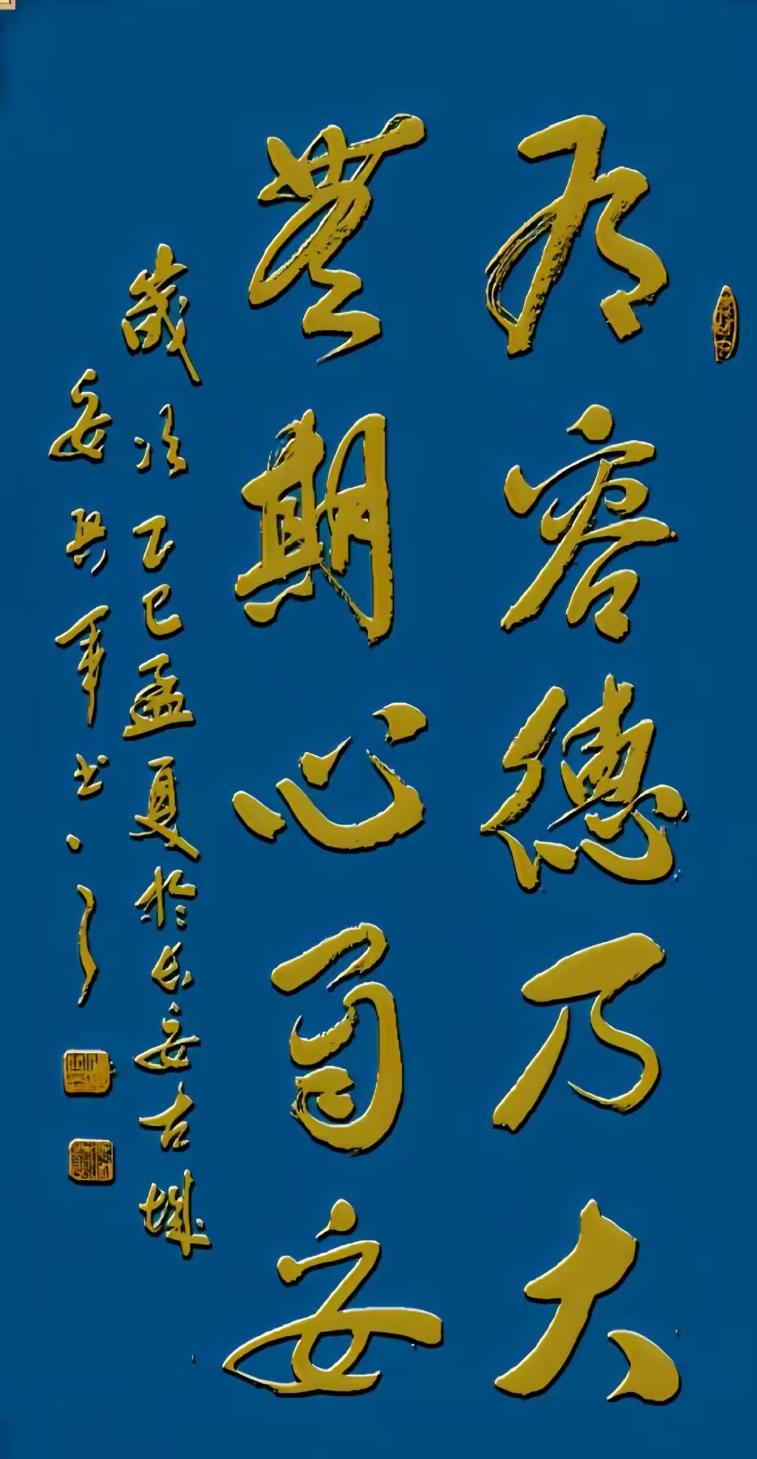 有容德乃大
無期心自安
歲次乙巳孟夏於長安古城
安兵軍书